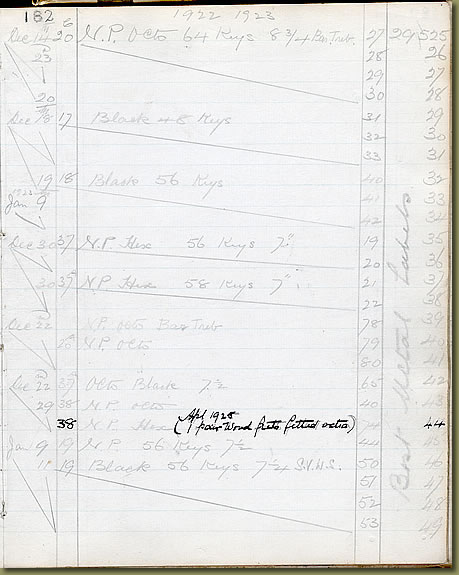 182 1922 1923
Dec 14 20 N.P. Octo 64 Keys 8 3/4 Bar. Treb. 27 29525
23 28 26
29 27
20 30 28
Dec 18 17 Black 48 Keys 31 29
32 30
33 31
19 18 Black 56 Keys 40 32
1923
Jan 9 41 33
42 34
Dec 30 37 N.P. Hex 56 Keys 7" 19 35
20 36
30 37 N.P. Hex 58 Keys 7" 21 37
22 38
Dec 22 N.P. Octo Bar Treb 78 39
N.P. Octo 79 40
80 41
Dec 22 37 Octo Black 7 1/2 65 42
29 38 N.P. Octo 40 43
Apl 1925
38 N.P. Hex (1 pair Wood flats fitted extra) 44
Jan 9 N.P. 56 Keys 7 1/2 44
11 19 Black 56 Keys 7 1/4 S.V.H.S. 50 46
51 47
52 48
53 49
Best Metal Labels